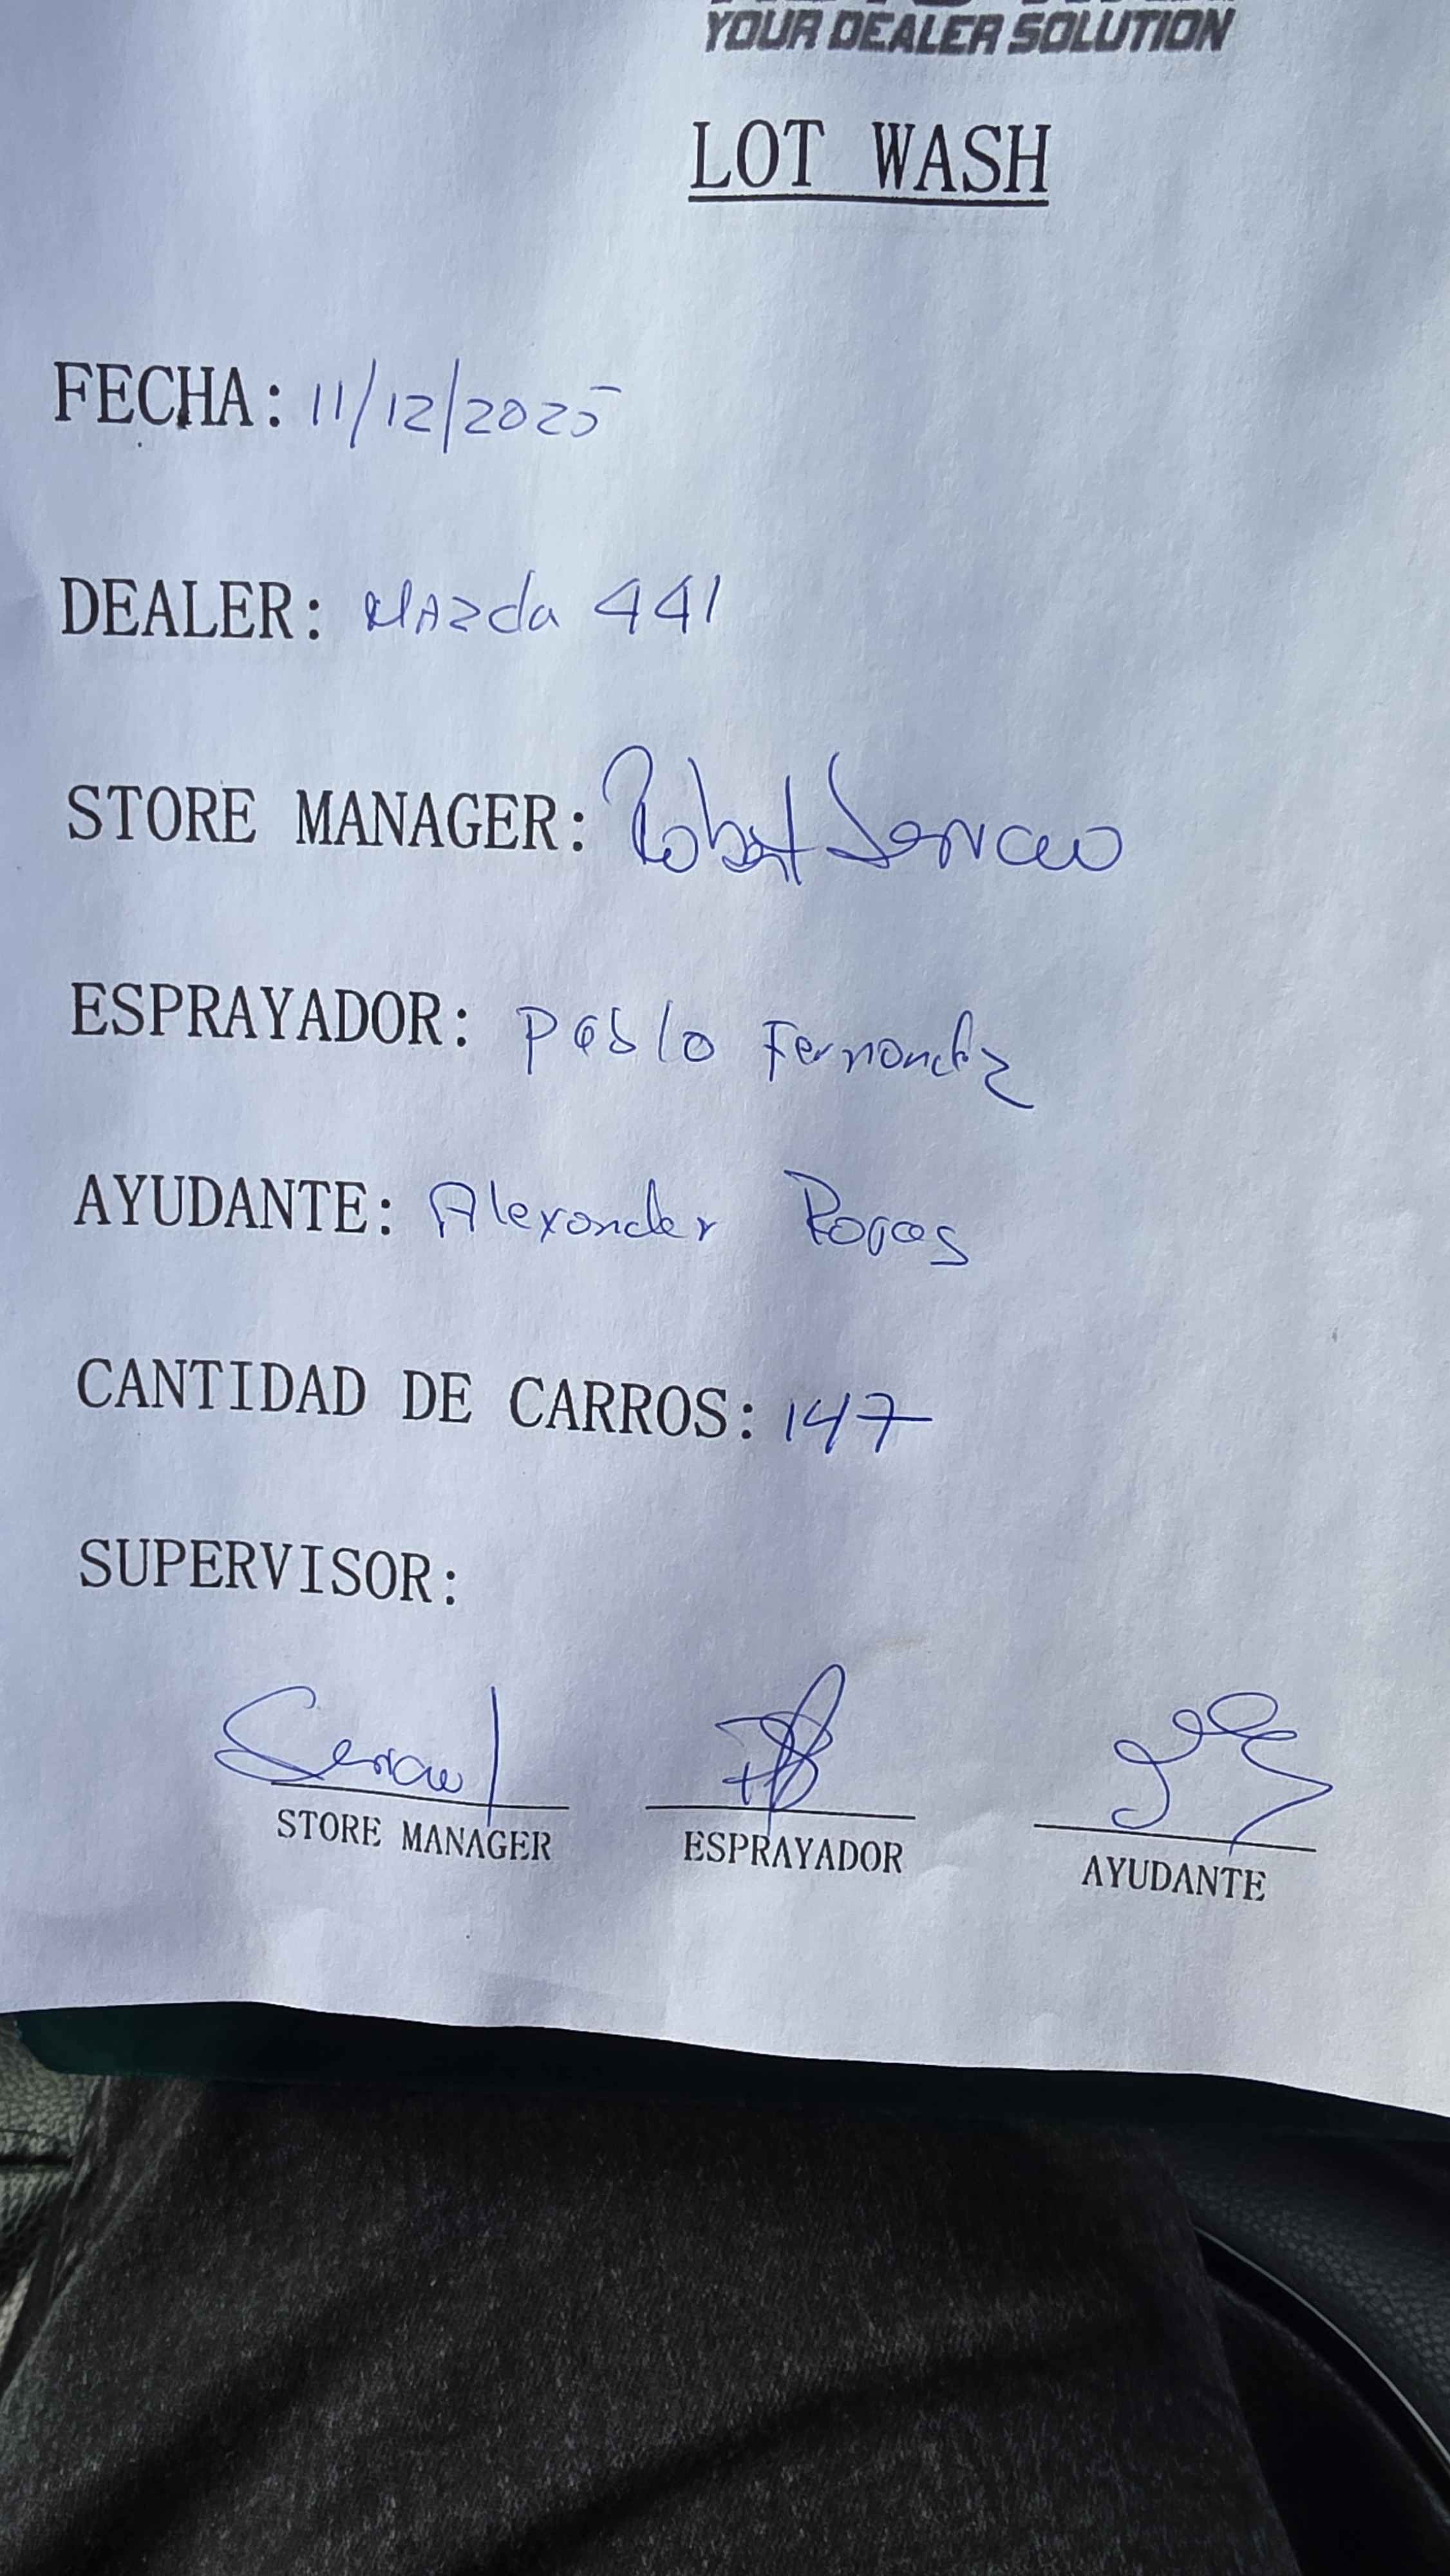 YOUR DEALER SOLUTION
LOT WASH
FECHA: 11/12/2025
DEALER: Mazda 441
STORE MANAGER: Robert Serrano
ESPRAYADOR: Pablo Fernandez
AYUDANTE: Alexander Rojas
CANTIDAD DE CARROS: 147
SUPERVISOR:
STORE MANAGER ESPRAYADOR AYUDANTE